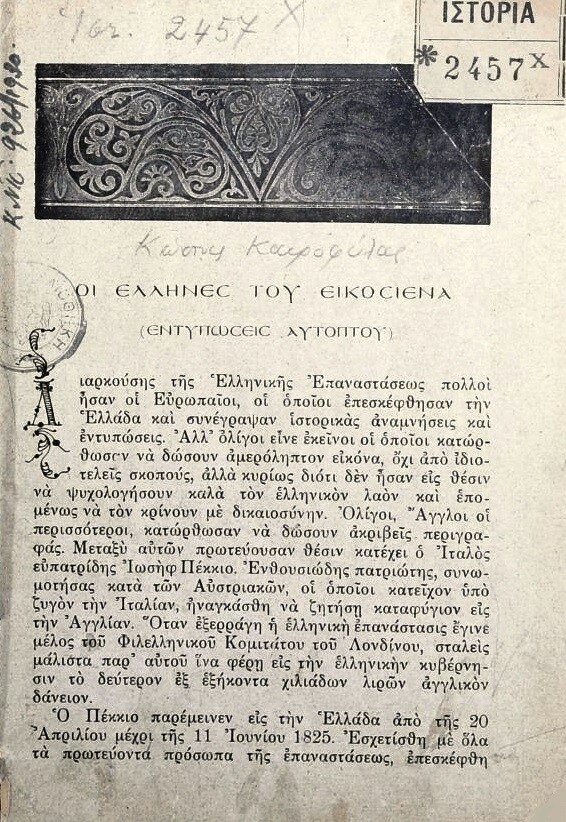 Ἱστ. 2457 X
ΙΣΤΟΡΙΑ
* 2457 X
Κ.Μ: 926/1930.
Κώστης Καιροφύλας
ΟΙ ΕΛΛΗΝΕΣ ΤΟΥ ΕΙΚΟΣΙΕΝΑ
(ΕΝΤΥΠΩΣΕΙΣ ΑΥΤΟΠΤΟΥ)
Διαρκούσης τῆς Ἑλληνικῆς Ἐπαναστάσεως πολλοὶ
ἦσαν οἱ Εὐρωπαῖοι, οἱ ὁποῖοι ἐπεσκέφθησαν τὴν
Ἑλλάδα καὶ συνέγραψαν ἱστορικὰς ἀναμνήσεις καὶ
ἐντυπώσεις. Ἀλλ' ὀλίγοι εἶνε ἐκεῖνοι οἱ ὁποῖοι κατώρ-
θωσαν νὰ δώσουν ἀμερόληπτον εἰκόνα, ὄχι ἀπὸ ἰδιο-
τελεῖς σκοπούς, ἀλλὰ κυρίως διότι δὲν ἦσαν εἰς θέσιν
νὰ ψυχολογήσουν καλὰ τὸν ἑλληνικὸν λαὸν καὶ ἑπο-
μένως νὰ τὸν κρίνουν μὲ δικαιοσύνην. Ὀλίγοι, Ἄγγλοι οἱ
περισσότεροι, κατώρθωσαν νὰ δώσουν ἀκριβεῖς περιγρα-
φάς. Μεταξὺ αὐτῶν πρωτεύουσαν θέσιν κατέχει ὁ Ἰταλὸς
εὐπατρίδης Ἰωσὴφ Πέκκιο. Ἐνθουσιώδης πατριώτης, συνω-
μοτήσας κατὰ τῶν Αὐστριακῶν, οἱ ὁποῖοι κατεῖχον ὑπὸ
ζυγὸν τὴν Ἰταλίαν, ἠναγκάσθη νὰ ζητήσῃ καταφύγιον εἰς
τὴν Ἀγγλίαν. Ὅταν ἐξερράγη ἡ ἑλληνικὴ ἐπανάστασις ἔγινε
μέλος τοῦ Φιλελληνικοῦ Κομιτάτου τοῦ Λονδίνου, σταλεὶς
μάλιστα παρ' αὐτοῦ ἵνα φέρῃ εἰς τὴν ἑλληνικὴν κυβέρνη-
σιν τὸ δεύτερον ἐξ ἑξήκοντα χιλιάδων λιρῶν ἀγγλικὸν
δάνειον.
Ὁ Πέκκιο παρέμεινεν εἰς τὴν Ἑλλάδα ἀπὸ τῆς 20
Ἀπριλίου μέχρι τῆς 11 Ἰουνίου 1825. Ἐσχετίσθη μὲ ὅλα
τὰ πρωτεύοντα πρόσωπα τῆς ἐπαναστάσεως, ἐπεσκέφθη